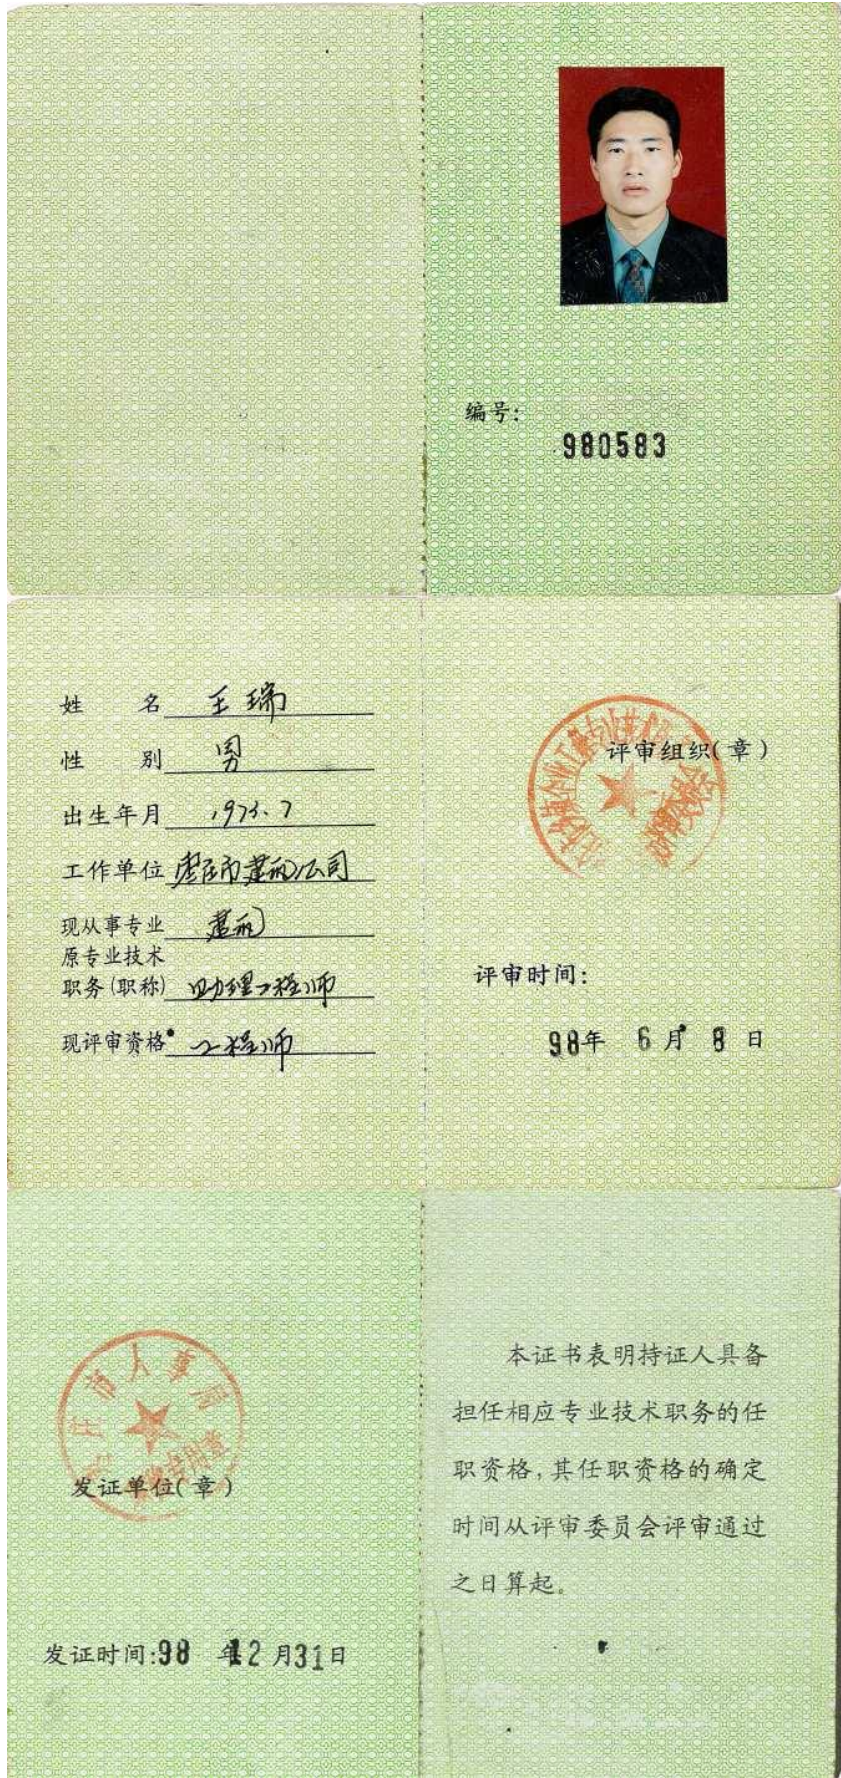 编号：
980583
姓 名 王瑞
性 别 男
出生年月 1973.7
工作单位 枣庄市建筑公司
现从事专业 建筑
原专业技术
职务(职称) 助理工程师
现评审资格 工程师
评审组织(章)
评审时间：
98年 6月 8日
市人事局
发证单位(章)
发证时间:98年12月31日
本证书表明持证人具备
担任相应专业技术职务的任
职资格,其任职资格的确定
时间从评审委员会评审通过
之日算起。